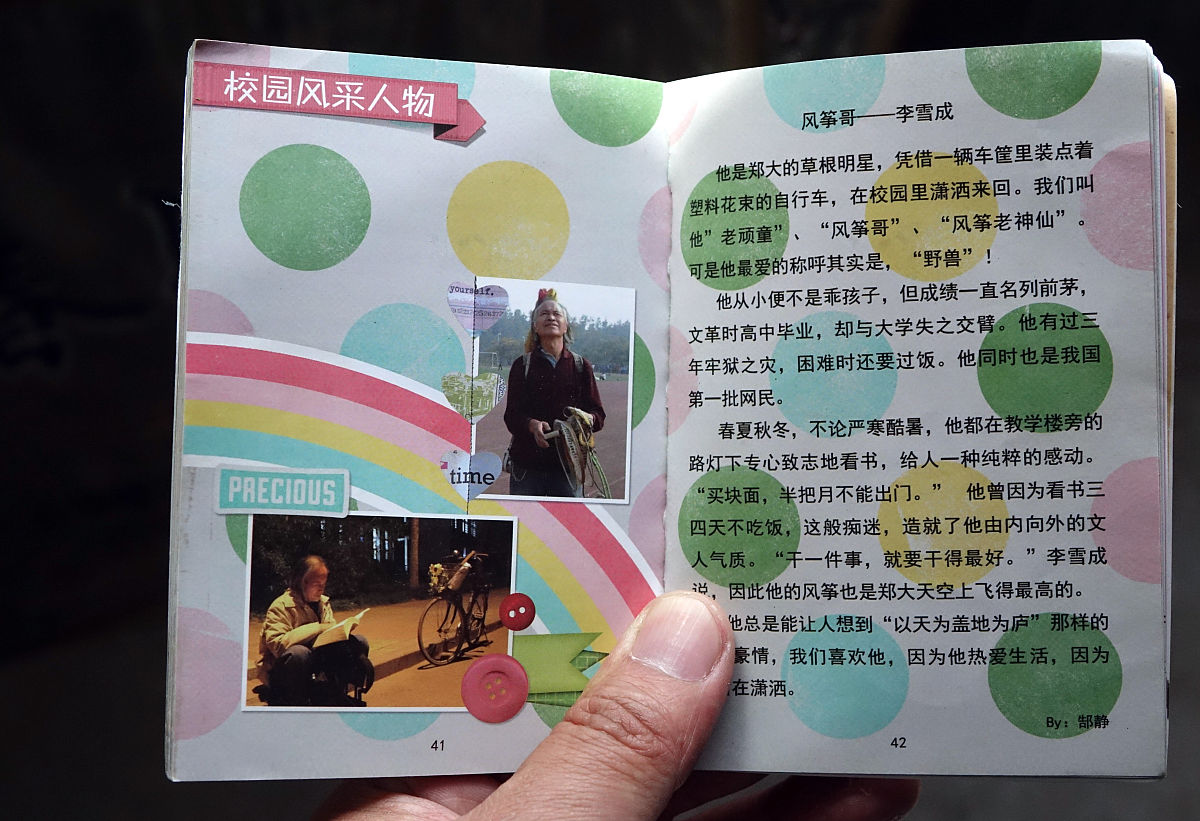 校园风采人物
yourself.
time
PRECIOUS
41
风筝哥——李雪成
他是郑大的草根明星，凭借一辆车筐里装点着
塑料花束的自行车，在校园里潇洒来回。我们叫
他”老顽童”、“风筝哥”、“风筝老神仙”。
可是他最爱的称呼其实是，“野兽”！
他从小便不是乖孩子，但成绩一直名列前茅，
文革时高中毕业，却与大学失之交臂。他有过三
年牢狱之灾，困难时还要过饭。他同时也是我国
第一批网民。
春夏秋冬，不论严寒酷暑，他都在教学楼旁的
路灯下专心致志地看书，给人一种纯粹的感动。
“买块面，半把月不能出门。” 他曾因为看书三
四天不吃饭，这般痴迷，造就了他由内向外的文
人气质。“干一件事，就要干得最好。”李雪成
说，因此他的风筝也是郑大天空上飞得最高的。
他总是能让人想到“以天为盖地为庐”那样的
豪情，我们喜欢他，因为他热爱生活，因为
在潇洒。
By：郜静
42